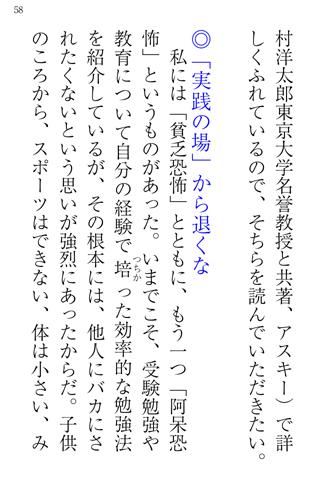 58
村洋太郎東京大学名誉教授と共著、アスキー）で詳
しくふれているので、そちらを読んでいただきたい。
◎「実践の場」から退くな
私には「貧乏恐怖」とともに、もう一つ「阿呆恐
怖」というものがあった。いまでこそ、受験勉強や
教育について自分の経験で培つちかった効率的な勉強法
を紹介しているが、その根本には、他人にバカにさ
れたくないという思いが強烈にあったからだ。子供
のころから、スポーツはできない、体は小さい、み